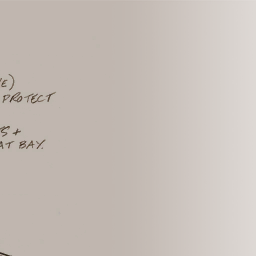 E)
PROTECT
S +
AT BAY.